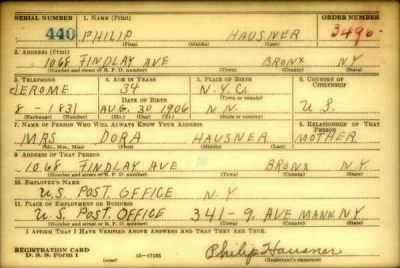 SERIAL NUMBER 1. NAME (Print) ORDER NUMBER
440 PHILIP HAUSNER 3490
(First) (Middle) (Last)
2. ADDRESS (Print)
1068 FINDLAY AVE BRONX NY
(Number and street or R. F. D. number) (Town) (County) (State)
3. TELEPHONE 4. AGE IN YEARS 5. PLACE OF BIRTH 6. COUNTRY OF CITIZENSHIP
JEROME 34 N.Y.C.
DATE OF BIRTH (Town or county)
8-1831 AUG. 30 1906 U.S.
(Exchange) (Number) (Mo.) (Day) (Yr.) (State or country)
7. NAME OF PERSON WHO WILL ALWAYS KNOW YOUR ADDRESS 8. RELATIONSHIP OF THAT PERSON
MRS DORA HAUSNER MOTHER
(Mr., Mrs., Miss) (First) (Middle) (Last)
9. ADDRESS OF THAT PERSON
1068 FINDLAY AVE BRONX N.Y.
(Number and street or R. F. D. number) (Town) (County) (State)
10. EMPLOYER'S NAME
U.S. POST. OFFICE N.Y
11. PLACE OF EMPLOYMENT OR BUSINESS
U.S. POST. OFFICE 341-9. AVE MANN. N.Y.
(Number and street or R. F. D. number) (Town) (County) (State)
I AFFIRM THAT I HAVE VERIFIED ABOVE ANSWERS AND THAT THEY ARE TRUE.
REGISTRATION CARD
D. S. S. FORM 1 16-17105 Philip Hausner
(Registrant's signature)